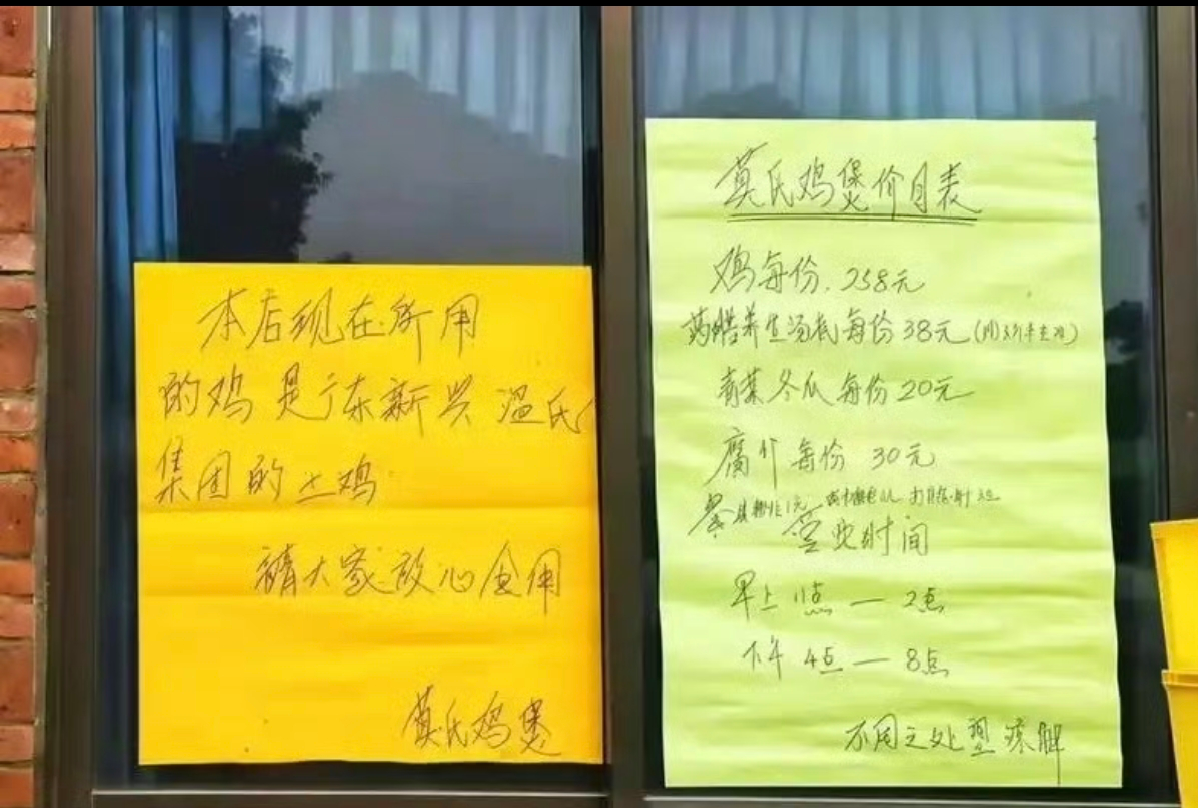 本店现在所用
的鸡是广东新兴温氏
集团的土鸡
请大家放心食用
莫氏鸡煲
莫氏鸡煲价目表
鸡每份.258元
药膳养生汤底每份38元
青菜冬瓜每份20元
腐竹每份30元
营业时间
早上11点—2点
下午4点—8点
不周之处望谅解